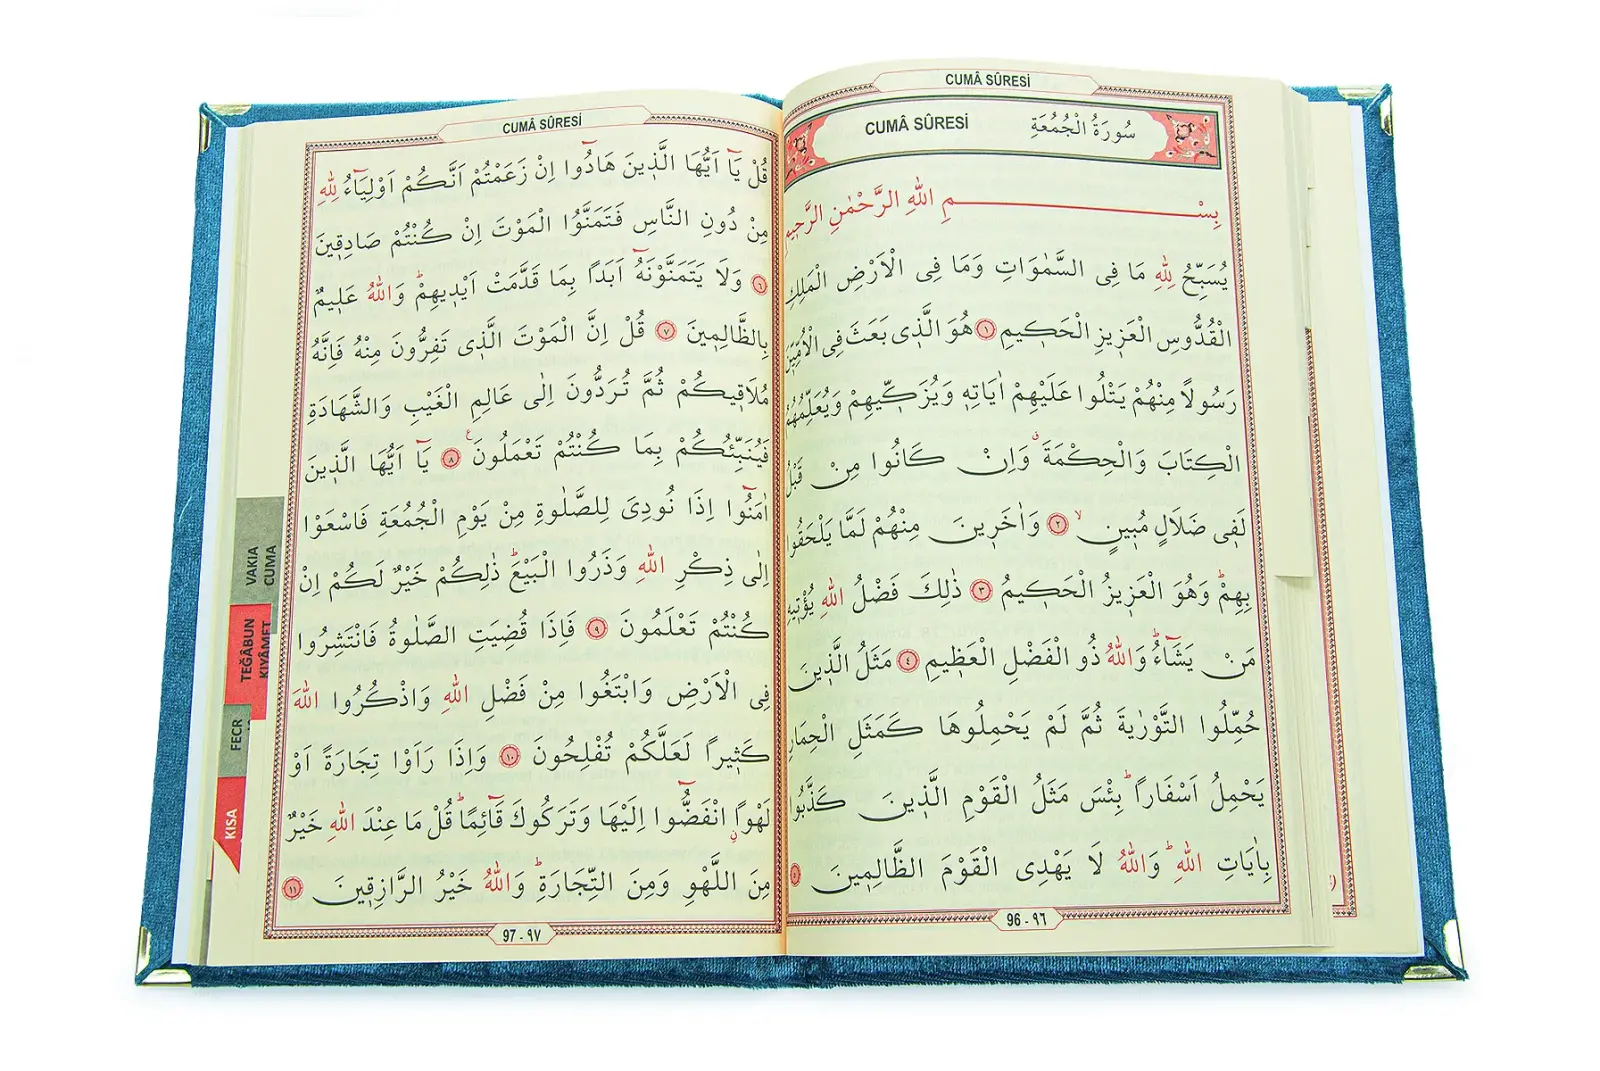 CUMÂ SÛRESİ
CUMÂ SÛRESİ سُورَةُ الْجُمُعَةِ
بِسْمِ اللّٰهِ الرَّحْمٰنِ الرَّحٖيمِ
يُسَبِّحُ لِلّٰهِ مَا فِى السَّمٰوَاتِ وَمَا فِى الْاَرْضِ الْمَلِكِ
الْقُدُّوسِ الْعَزٖيزِ الْحَكٖيمِ ١ هُوَ الَّذٖى بَعَثَ فِى الْاُمِّيّٖنَ
رَسُولًا مِنْهُمْ يَتْلُوا عَلَيْهِمْ اٰيَاتِهٖ وَيُزَكّٖيهِمْ وَيُعَلِّمُهُمُ
الْكِتَابَ وَالْحِكْمَةَۗ وَاِنْ كَانُوا مِنْ قَبْلُ
لَفٖى ضَلَالٍ مُبٖينٍۙ ٢ وَاٰخَرٖينَ مِنْهُمْ لَمَّا يَلْحَقُوا
بِهِمْؕ وَهُوَ الْعَزٖيزُ الْحَكٖيمُ ٣ ذٰلِكَ فَضْلُ اللّٰهِ يُؤْتٖيهِ
مَنْ يَشَٓاءُؕ وَاللّٰهُ ذُو الْفَضْلِ الْعَظٖيمِ ٤ مَثَلُ الَّذٖينَ
حُمِّلُوا التَّوْرٰيةَ ثُمَّ لَمْ يَحْمِلُوهَا كَمَثَلِ الْحِمَارِ
يَحْمِلُ اَسْفَارًاؕ بِئْسَ مَثَلُ الْقَوْمِ الَّذٖينَ كَذَّبُوا
بِاٰيَاتِ اللّٰهِؕ وَاللّٰهُ لَا يَهْدِى الْقَوْمَ الظَّالِمٖينَ ٥
96 - ٩٦
CUMÂ SÛRESİ
قُلْ يَٓا اَيُّهَا الَّذٖينَ هَادُٓوا اِنْ زَعَمْتُمْ اَنَّكُمْ اَوْلِيَٓاءُ لِلّٰهِ
مِنْ دُونِ النَّاسِ فَتَمَنَّوُا الْمَوْتَ اِنْ كُنْتُمْ صَادِقٖينَ
٦ وَلَا يَتَمَنَّوْنَهُٓ اَبَدًا بِمَا قَدَّمَتْ اَيْدٖيهِمْؕ وَاللّٰهُ عَلٖيمٌ
بِالظَّالِمٖينَ ٧ قُلْ اِنَّ الْمَوْتَ الَّذٖى تَفِرُّونَ مِنْهُ فَاِنَّهُ
مُلَاقٖيكُمْ ثُمَّ تُرَدُّونَ اِلٰى عَالِمِ الْغَيْبِ وَالشَّهَادَةِ
فَيُنَبِّئُكُمْ بِمَا كُنْتُمْ تَعْمَلُونَ ع ٨ يَٓا اَيُّهَا الَّذٖينَ
اٰمَنُٓوا اِذَا نُودِىَ لِلصَّلٰوةِ مِنْ يَوْمِ الْجُمُعَةِ فَاسْعَوْا
اِلٰى ذِكْرِ اللّٰهِ وَذَرُوا الْبَيْعَؕ ذٰلِكُمْ خَيْرٌ لَكُمْ اِنْ
كُنْتُمْ تَعْلَمُونَ ٩ فَاِذَا قُضِيَتِ الصَّلٰوةُ فَانْتَشِرُوا
فِى الْاَرْضِ وَابْتَغُوا مِنْ فَضْلِ اللّٰهِ وَاذْكُرُوا اللّٰهَ
كَثٖيرًا لَعَلَّكُمْ تُفْلِحُونَ ١٠ وَاِذَا رَاَوْا تِجَارَةً اَوْ
لَهْوًاۨ انْفَضُّٓوا اِلَيْهَا وَتَرَكُوكَ قَٓائِمًاؕ قُلْ مَا عِنْدَ اللّٰهِ خَيْرٌ
مِنَ اللَّهْوِ وَمِنَ التِّجَارَةِؕ وَاللّٰهُ خَيْرُ الرَّازِقٖينَ ١١
97 - ٩٧
VAKIA
CUMA
TEĞÂBUN
KIYÂMET
FECR
KISA